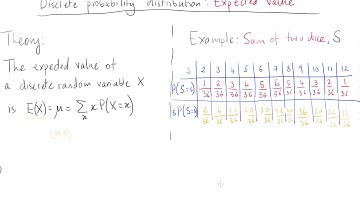 Discrete probability distribution: Expected Value
Theory:
The expected value of
a discrete random variable X
is E(X) = μ = Σ x P(X=x)
x
Example: Sum of two dice, S
S 2 3 4 5 6 7 8 9 10 11 12
P(S=s) 1/36 2/36 3/36 4/36 5/36 6/36 5/36 4/36 3/36 2/36 1/36
sP(S=s) 2/36 6/36 12/36 20/36 30/36 42/36 40/36 36/36 30/36 22/36 12/36